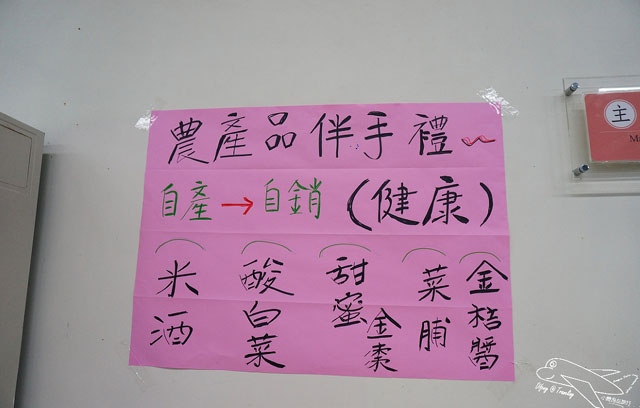 農產品伴手禮~
自產→自銷(健康)
米酒
酸白菜
甜蜜金棗
菜脯
金桔醬
主